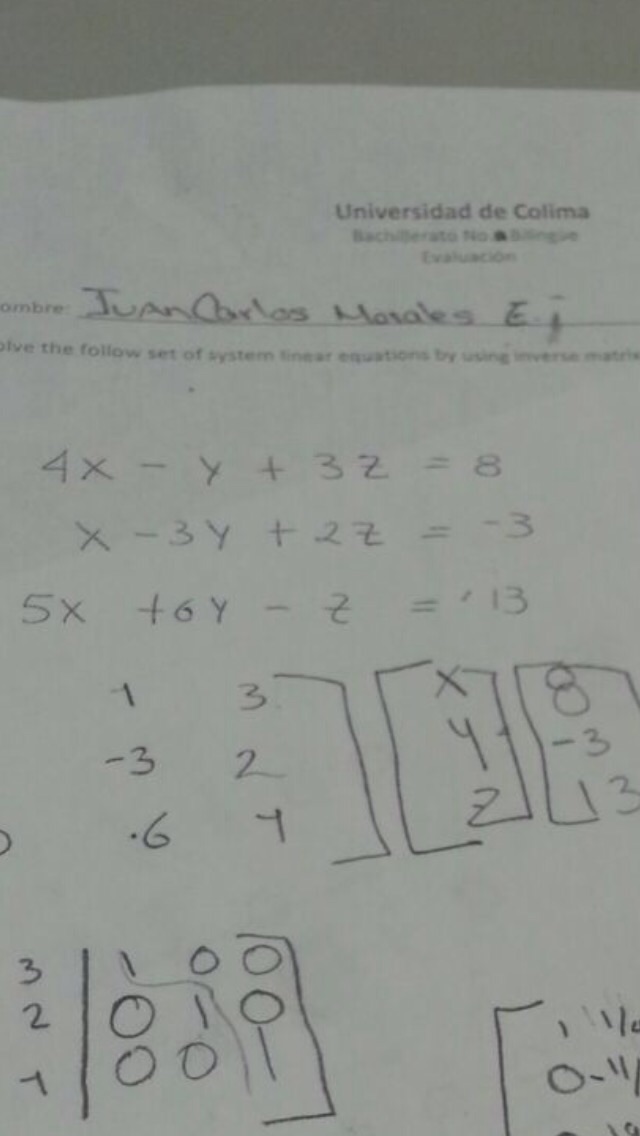 Universidad de Colima
Bachillerato No. Bilingüe
Evaluación
ombre: Juan Carlos Morales E.
olve the follow set of system linear equations by using inverse matrix
4x - y + 3z = 8
x - 3y + 2z = -3
5x + 6y - z = 13
-1 3 x 8
-3 2 y -3
6 -1 z 13
3 | 1 0 0
2 | 0 1 0
-1 | 0 0 1